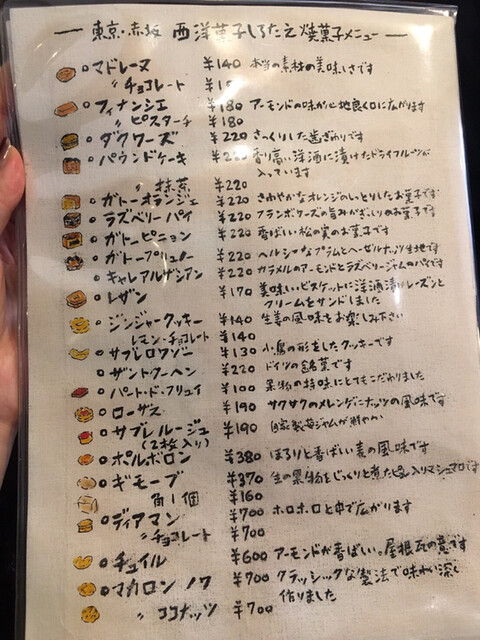 東京・赤坂 西洋菓子しろたえ 焼菓子メニュー
マドレーヌ ¥140 本当の素材の美味しさです
〃チョコレート
フィナンシェ ¥180 アーモンドの味が心地良く口に広がります
〃ピスターチ ¥180
ダクワーズ ¥220 さっくりした歯ざわりです
パウンドケーキ 香り高い洋酒に漬けたドライフルーツが
入っています
〃抹茶 ¥220
ガトーオランジェ ¥220 さわやかなオレンジのしっとりしたお菓子です
ラズベリーパイ ¥220 フランボワーズの旨みがぎっしりのお菓子です
ガトーピニョン ¥220 香ばしい松の実のお菓子です
ガトープリュノー ¥220 ヘルシーなプラムとヘーゼルナッツ生地です
キャレアルザシアン ¥220 カラメルのアーモンドとラズベリージャムのパイです
レザン ¥170 美味しいビスケットに洋酒漬けレーズンと
クリームをサンドしました
ジンジャークッキー ¥140 生姜の風味をお楽しみ下さい
レモン・チョコレート ¥140
サブレロワゾー ¥130 小鳥の形をしたクッキーです
ザントクーヘン ¥220 ドイツの銘菓です
パート・ド・フリュイ ¥100 果物の持味にとてもこだわりました
ローザス ¥190 サクサクのメレンゲにナッツの風味です
サブレルージュ ¥190 自家製苺ジャムが鮮やか
(2枚入り)
ポルボロン ¥380 ほろりと香ばしい麦の風味です
ギモーブ ¥370 生の果物をじっくりと煮たピューレ入りマシュマロです
角1個 ¥160
ディアマン ¥700 ホロホロと口中で広がります
〃チョコレート ¥700
チュイル ¥600 アーモンドが香ばしい。屋根瓦の意です
マカロンノワ ¥700 クラッシックな製法で味わい深く
作りました
〃ココナッツ ¥700